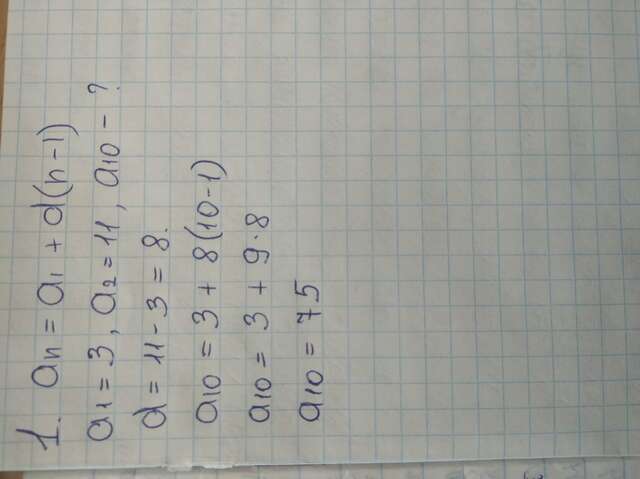 1. an = a1 + d(n-1)
a1 = 3, a2 = 11, a10 - ?
d = 11 - 3 = 8.
a10 = 3 + 8(10-1)
a10 = 3 + 9·8
a10 = 75